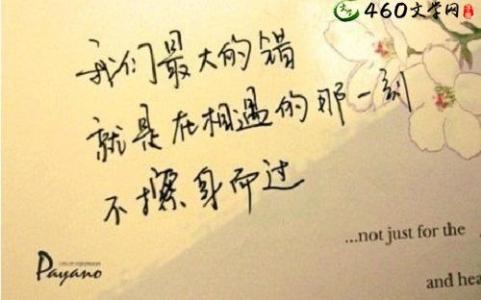 460文学网
我们最大的错
就是在相遇的那一刻
不擦身而过
...not just for the
and hea
Payano